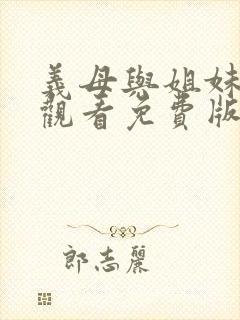 義母與姐妹
觀看免費版
郎志麗